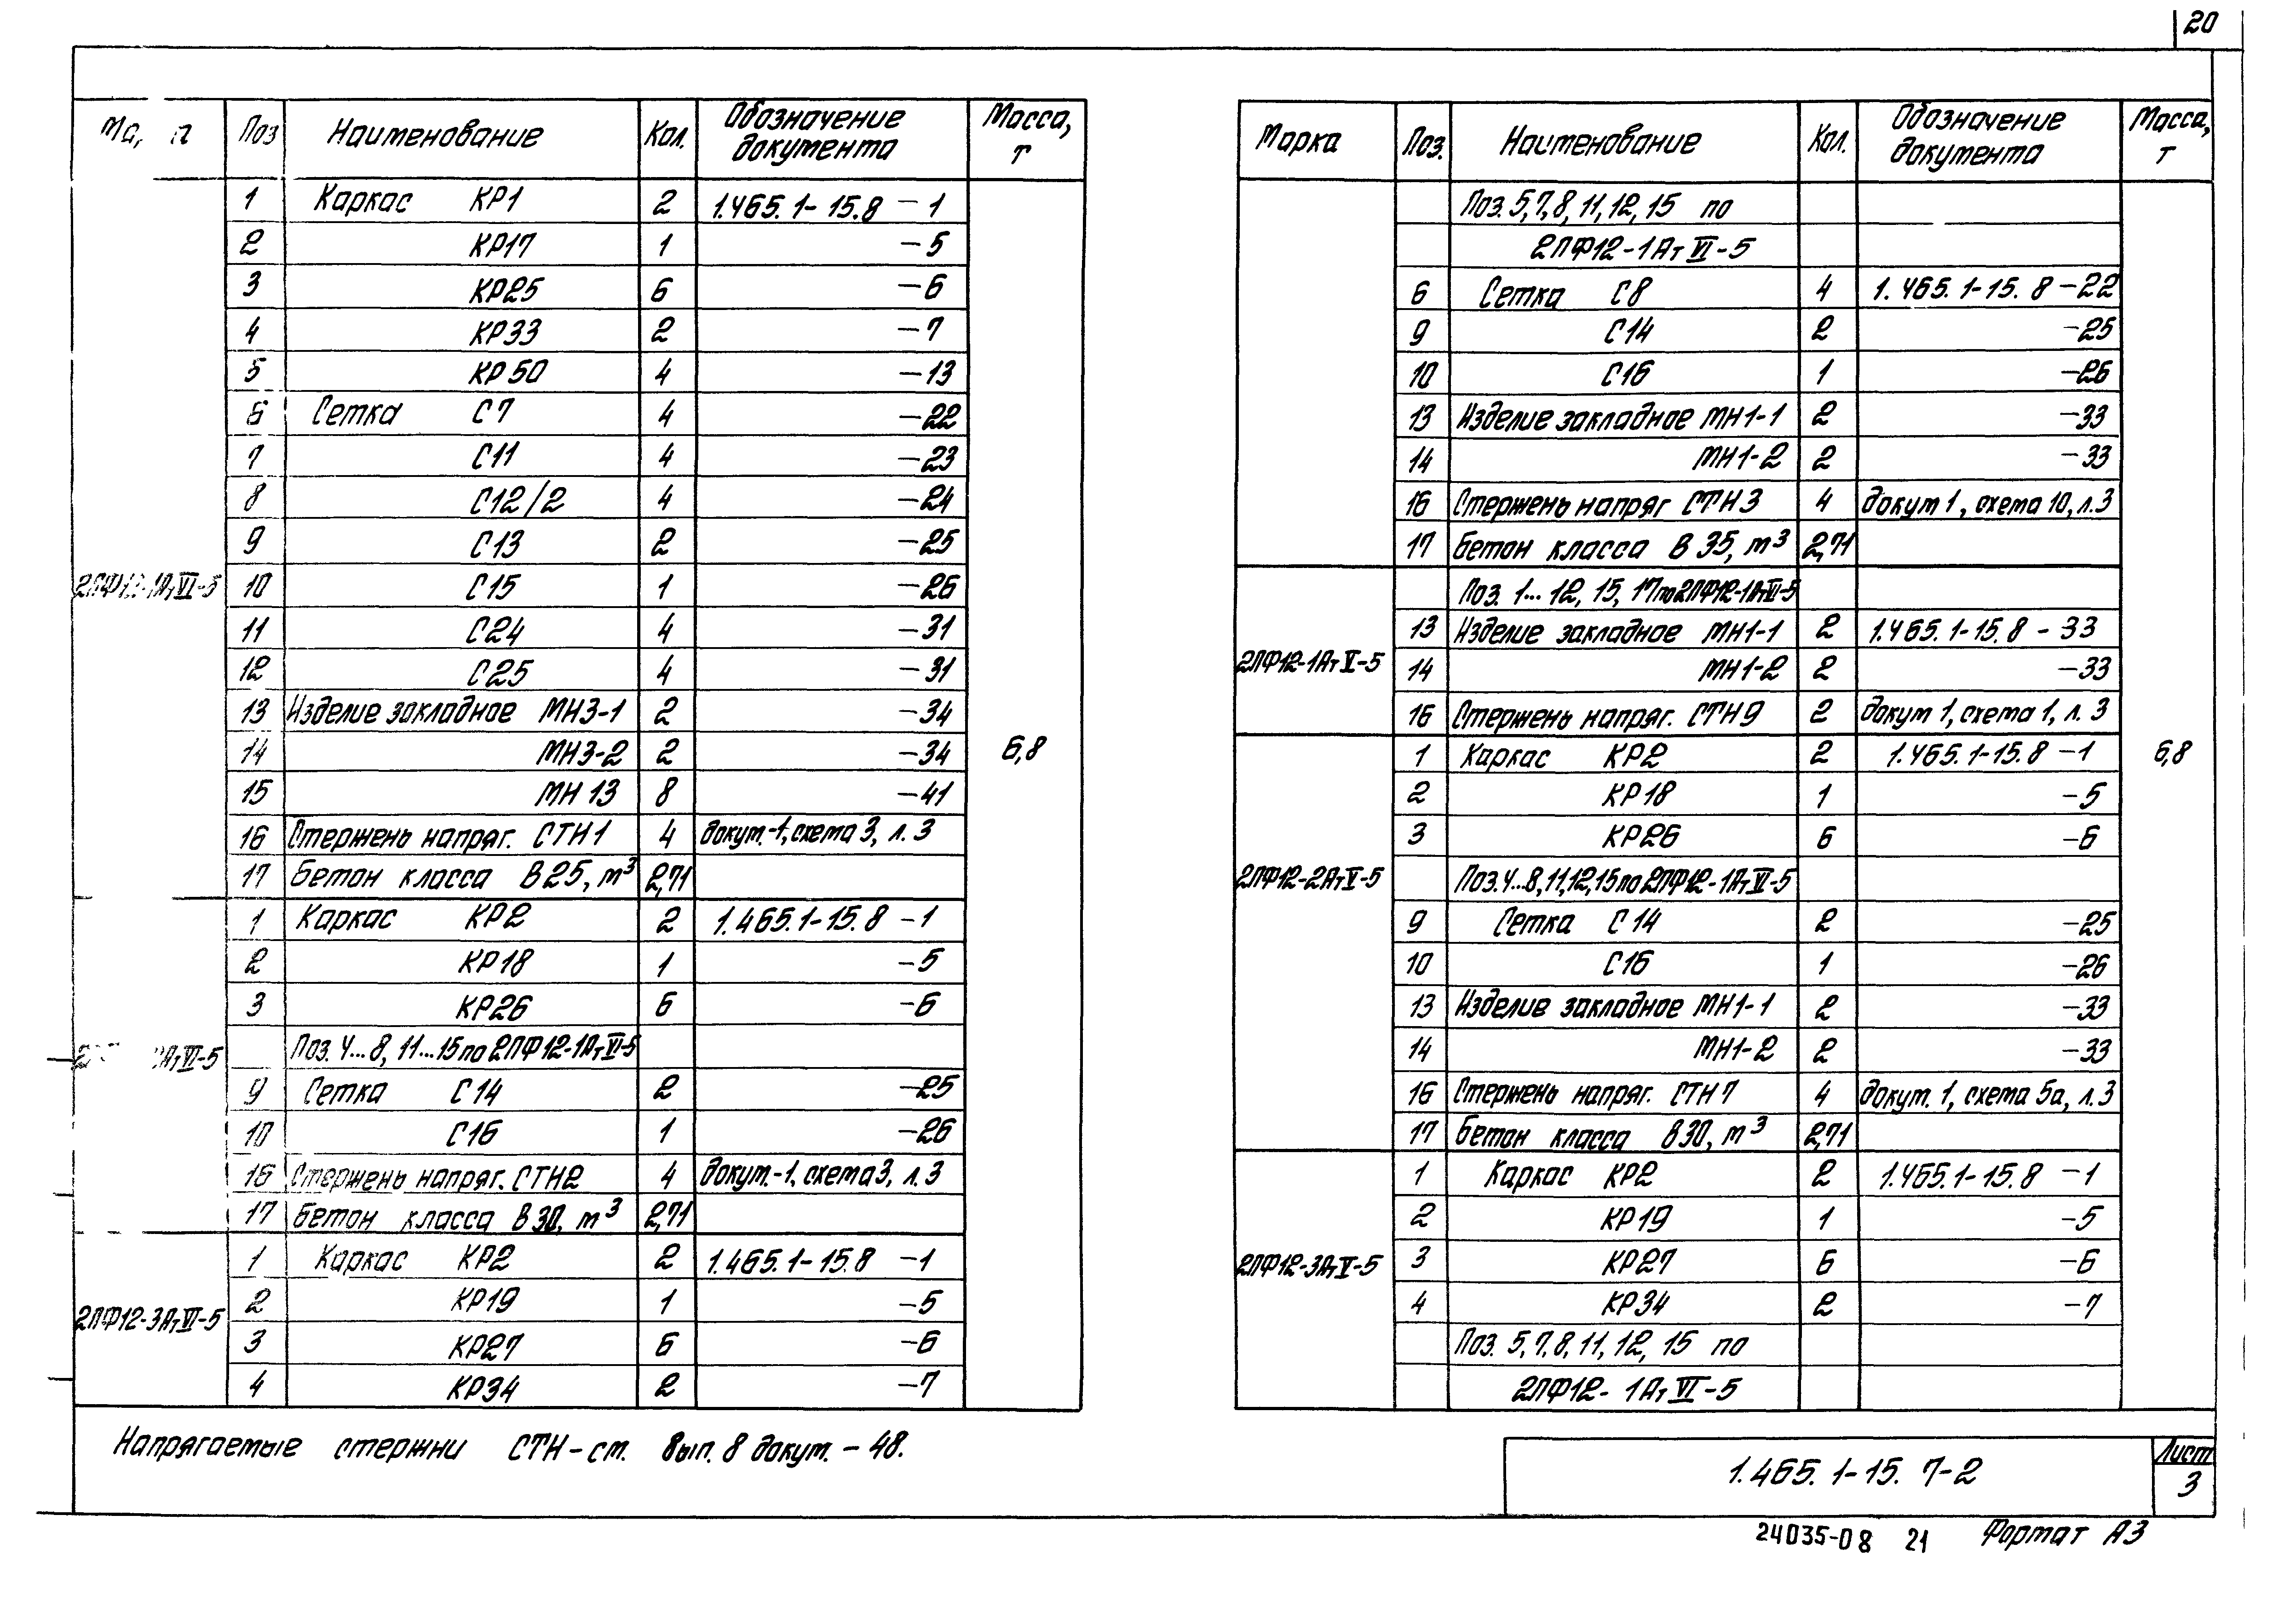 20
Поз Наименование Кол. Обозначение документа Масса, т
1 Каркас КР1 2 1.465.1-15.8 -1
2 КР17 1 -5
3 КР25 6 -6
4 КР33 2 -7
5 КР50 4 -13
6 Сетка С7 4 -22
7 С11 4 -23
8 С12/2 4 -24
9 С13 2 -25
2ПФ12-1АтVI-5 10 С15 1 -26
11 С24 4 -31
12 С25 4 -31
13 Изделие закладное МН3-1 2 -34
14 МН3-2 2 -34 6,8
15 МН13 8 -41
16 Стержень напряг. СТН1 4 докут.-1, схема 3, л.3
17 Бетон класса В25, м³ 2,71
1 Каркас КР2 2 1.465.1-15.8 -1
2 КР18 1 -5
3 КР26 6 -6
Поз. 4...8, 11...15 по 2ПФ12-1АтVI-5
АтVI-5
9 Сетка С14 2 -25
10 С16 1 -26
16 Стержень напряг. СТН2 4 докут.-1, схема 3, л.3
17 Бетон класса В30, м³ 2,71
1 Каркас КР2 2 1.465.1-15.8 -1
2 КР19 1 -5
2ПФ12-3АтVI-5
3 КР27 6 -6
4 КР34 2 -7
Напрягаемые стержни СТН-ст. Вып. 8 докут. -48.
Марка Поз. Наименование Кол. Обозначение документа Масса, т
Поз. 5, 7, 8, 11, 12, 15 по
2ПФ12-1АтVI-5
6 Сетка С8 4 1.465.1-15.8 -22
9 С14 2 -25
10 С16 1 -26
13 Изделие закладное МН1-1 2 -33
14 МН1-2 2 -33
16 Стержень напряг СТН3 4 докут 1, схема 10, л.3
17 Бетон класса В35, м³ 2,71
Поз. 1...12, 15, 17 по 2ПФ12-1АтVI-5
13 Изделие закладное МН1-1 2 1.465.1-15.8 -33
2ПФ12-1АтV-5 14 МН1-2 2 -33
16 Стержень напряг. СТН9 2 докут 1, схема 1, л.3
1 Каркас КР2 2 1.465.1-15.8 -1 6,8
2 КР18 1 -5
3 КР26 6 -6
2ПФ12-2АтV-5 Поз. 4...8, 11, 12, 15 по 2ПФ12-1АтVI-5
9 Сетка С14 2 -25
10 С16 1 -26
13 Изделие закладное МН1-1 2 -33
14 МН1-2 2 -33
16 Стержень напряг. СТН7 4 докут. 1, схема 5а, л.3
17 Бетон класса В30, м³ 2,71
1 Каркас КР2 2 1.465.1-15.8 -1
2 КР19 1 -5
2ПФ12-3АтV-5 3 КР27 6 -6
4 КР34 2 -7
Поз. 5, 7, 8, 11, 12, 15 по
2ПФ12-1АтVI-5
1.465.1-15. 7-2
Лист
3
24035-08 21 Формат А3